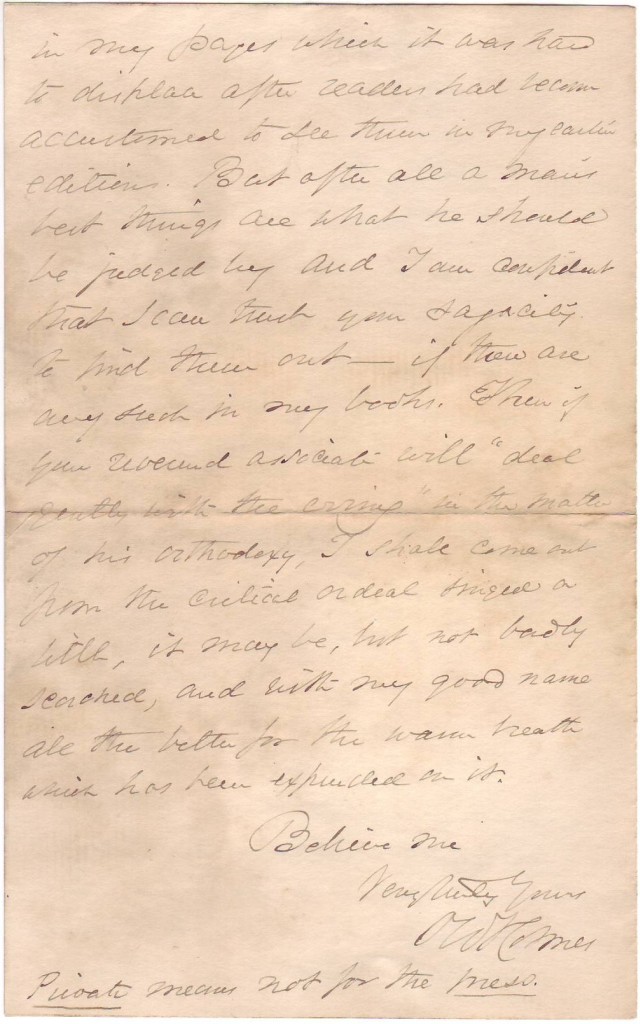 in my pages which it was hard
to displace after readers had become
accustomed to see them in my earlier
editions. But after all a man's
best things are what he should
be judged by and I am confident
that I can trust your sagacity
to find them out — if there are
any such in my books. Then if
your reverend associate will "deal
gently with the erring" in the matter
of his orthodoxy, I shall come out
from the critical ordeal singed a
little, it may be, but not badly
scorched, and with my good name
all the better for the warm breath
which has been expended on it.
Believe me
Very truly Yours
O W Holmes
Private means not for the press.